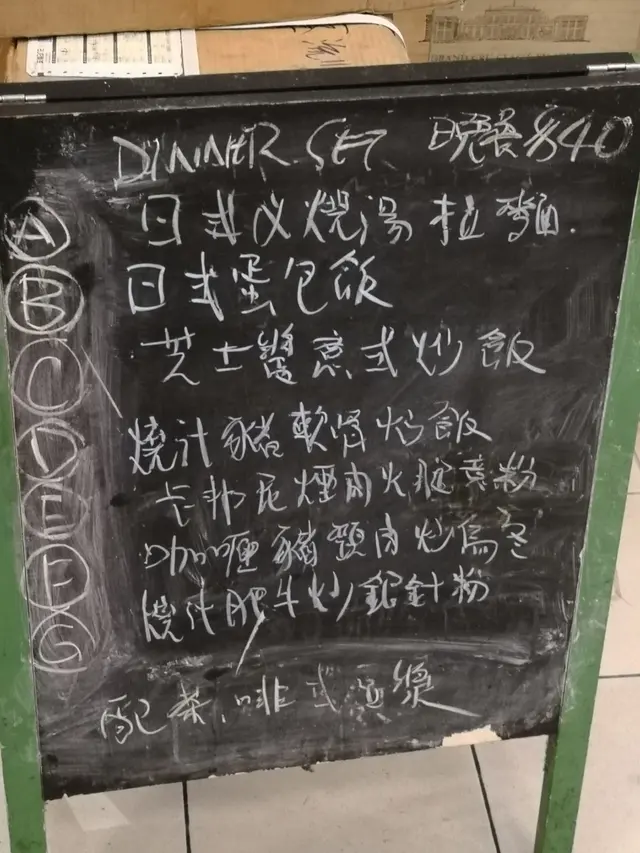 DINNER SET 晚餐 $40
A 日式叉燒湯拉麵.
B 日式蛋包飯
C 芝士醬意式炒飯
D 燒汁豬軟骨炒飯
E 卡邦尼煙肉火腿意粉
F 咖喱豬頸肉炒烏冬
G 燒汁肥牛炒銀針粉
配茶、啡或豆漿